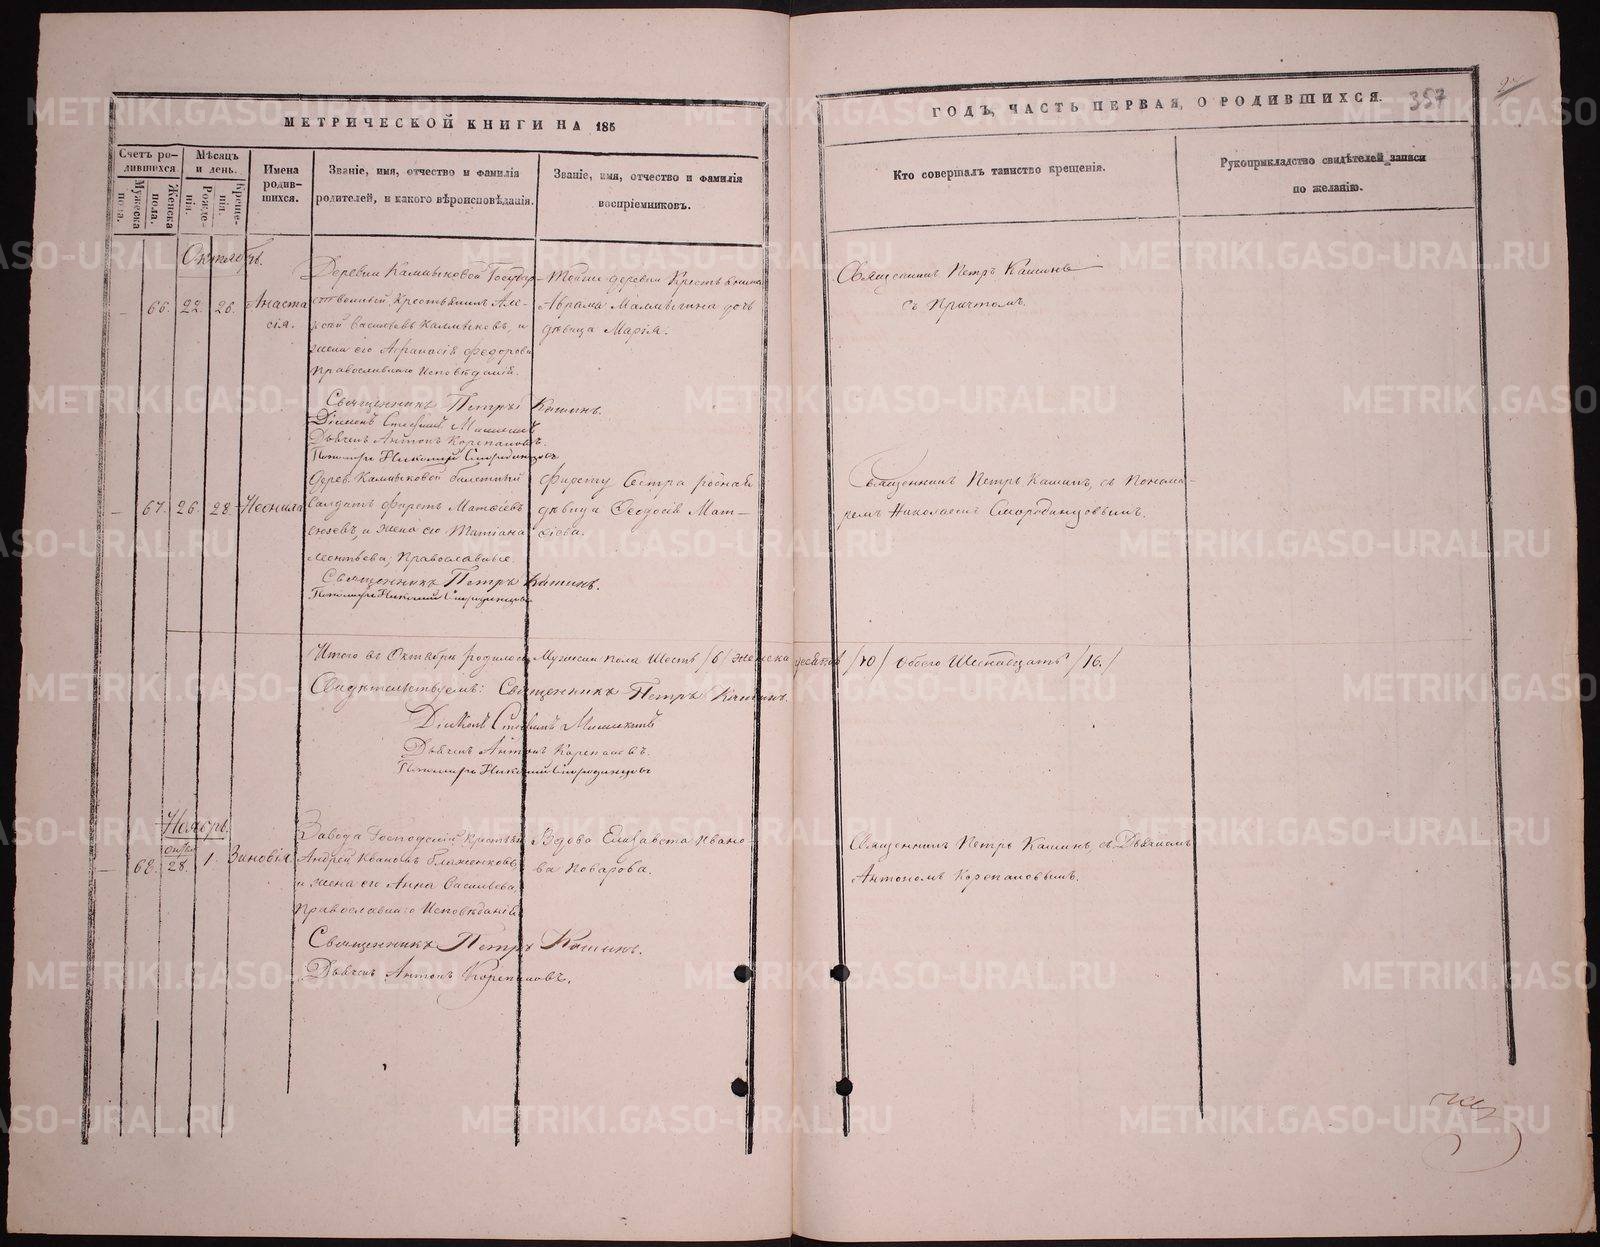 МЕТРИЧЕСКОЙ КНИГИ НА 185
Счетъ ро-
дившихся.
Мужеска
пола.
Женска
пола.
Мѣсяцъ
и день.
Рожде-
нія.
Креще-
нія.
Имена
родив-
шихся.
Званіе, имя, отчество и фамилія
родителей, и какого вѣроисповѣданія.
Званіе, имя, отчество и фамилія
воспріемниковъ.
Октябрь.
66. 22. 26. Анаста
сія.
Деревни Калмыковой Государ-
ственный Крестьянинъ Але-
ксѣй Васильевъ Калмыковъ, и
жена его Афанасія Федорова
Православнаго Исповѣданія.
Тойже деревни Крестьянина
Авраама дочь
дѣвица Марія.
Священникъ Петръ Кашинъ.
Діаконъ Стефанъ
Дьячекъ Антонъ Корепановъ.
Пономарь Николай Смородинцовъ
67. 26. 28. Неонила
Дерев. Калмыковой билетный
Солдатъ Фирсъ Матвѣевъ
и жена его Татіана
Леонтьева, Православные.
Фирсу Сестра родная
дѣвица Феодосія Мат-
вѣева.
Священникъ Петръ Кашинъ.
Пономарь Николай Смородинцовъ
Итого въ Октябрѣ родилось Мужеска пола Шесть /6/ женска десять /10/ обоего Шестнадцать /16./
Свидѣтельствуемъ: Священникъ Петръ Кашинъ.
Діаконъ Стефанъ
Дьячекъ Антонъ Корепановъ.
Пономарь Николай Смородинцовъ
Ноябрь.
68. 28. 1. Зиновія.
Завода Господскій Крестьян
Андрей Ивановъ
и жена его Анна Васильева,
Православнаго Исповѣданія
Вдова Елисавета Ивано
ва Поварова.
Священникъ Петръ Кашинъ.
Дьячекъ Антонъ Корепановъ.
ГОДЪ, ЧАСТЬ ПЕРВАЯ, О РОДИВШИХСЯ.
357
Кто совершалъ таинство крещенія.
Рукоприкладство свидѣтелей записи
по желанію.
Священникъ Петръ Кашинъ
съ Причтомъ.
Священникъ Петръ Кашинъ, съ Понома-
ремъ Николаемъ Смородинцовымъ.
Священникъ Петръ Кашинъ съ Дьячкомъ
Антономъ Корепановымъ.
METRIKI.GASO-URAL.RU